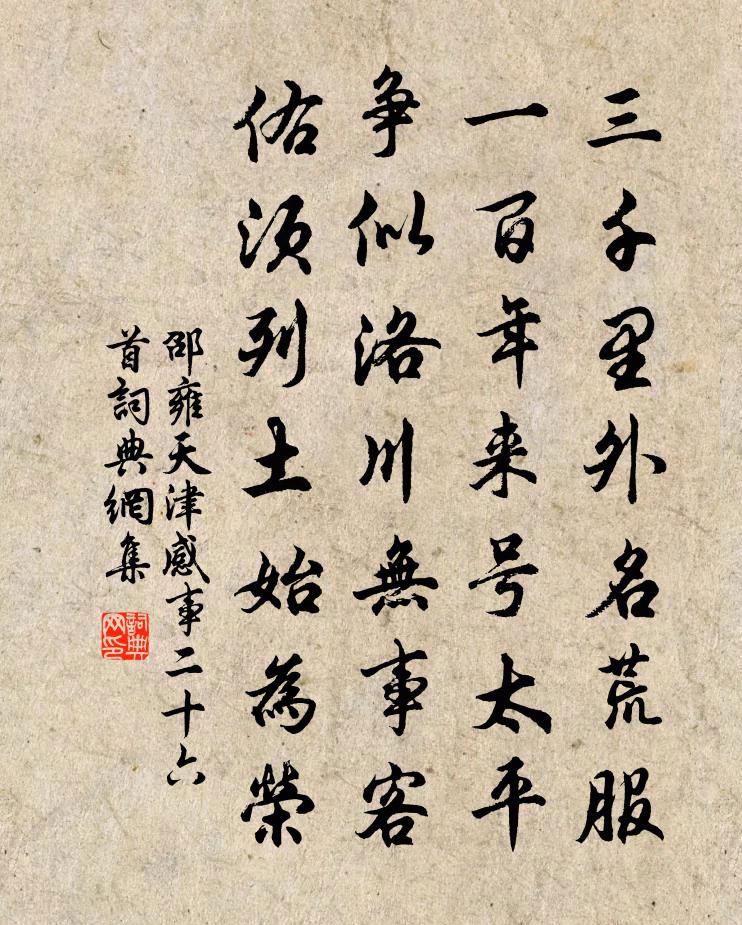 三千里外名荒服
一百年来号太平
争似洛川無事客
俗须列土始為榮
邵雍天津感事二十六
首詞典網集
詞典
网印